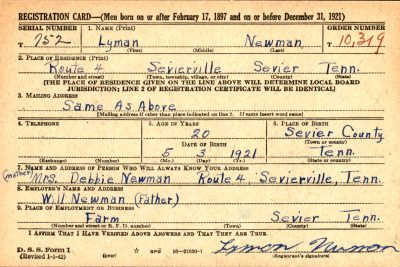 REGISTRATION CARD—(Men born on or after February 17, 1897 and on or before December 31, 1921)
SERIAL NUMBER 1. NAME (Print) ORDER NUMBER
T 752 Lyman Newman T 10,319
(First) (Middle) (Last)
2. PLACE OF RESIDENCE (Print)
Route 4 Sevierville Sevier Tenn.
(Number and street) (Town, township, village, or city) (County) (State)
[THE PLACE OF RESIDENCE GIVEN ON THE LINE ABOVE WILL DETERMINE LOCAL BOARD
JURISDICTION; LINE 2 OF REGISTRATION CERTIFICATE WILL BE IDENTICAL]
3. MAILING ADDRESS
Same As Above
[Mailing address if other than place indicated on line 2. If same insert word same]
4. TELEPHONE 5. AGE IN YEARS 6. PLACE OF BIRTH
20 Sevier County
DATE OF BIRTH (Town or county)
5 3 1921 Tenn.
(Exchange) (Number) (Mo.) (Day) (Yr.) (State or country)
7. NAME AND ADDRESS OF PERSON WHO WILL ALWAYS KNOW YOUR ADDRESS
(mother) Mrs. Debbie Newman Route 4 Sevierville, Tenn.
8. EMPLOYER'S NAME AND ADDRESS
Will Newman (Father)
9. PLACE OF EMPLOYMENT OR BUSINESS
Farm Sevier Tenn.
(Number and street or R. F. D. number) (Town) (County) (State)
I AFFIRM THAT I HAVE VERIFIED ABOVE ANSWERS AND THAT THEY ARE TRUE.
D. S. S. Form 1
(Revised 1-1-42) (over) 16-21630-1 Lymon Numon
(Registrant's signature)